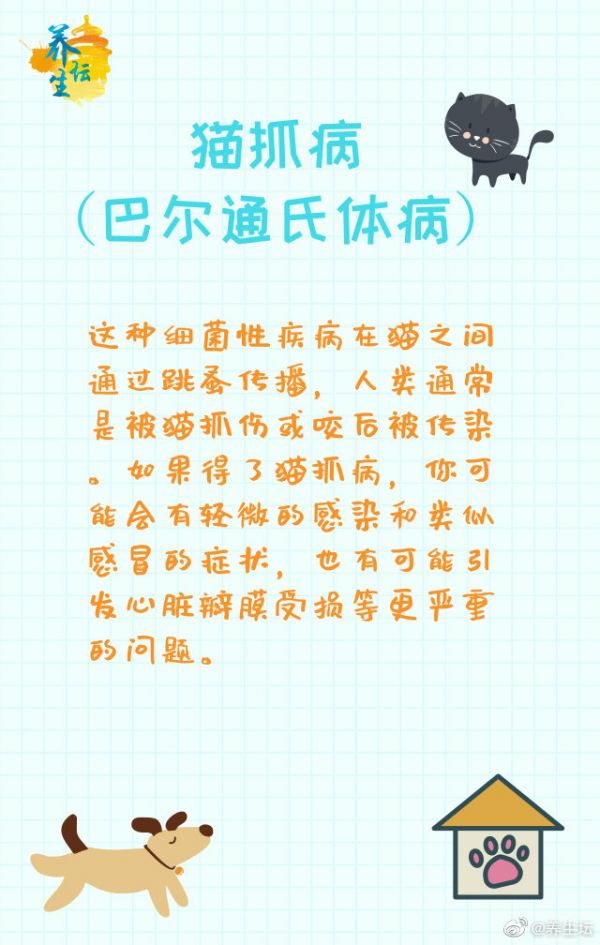 养生坛
猫抓病
（巴尔通氏体病）
这种细菌性疾病在猫之间
通过跳蚤传播，人类通常
是被猫抓伤或咬后被传染
。如果得了猫抓病，你可
能会有轻微的感染和类似
感冒的症状，也有可能引
发心脏瓣膜受损等更严重
的问题。
@养生坛